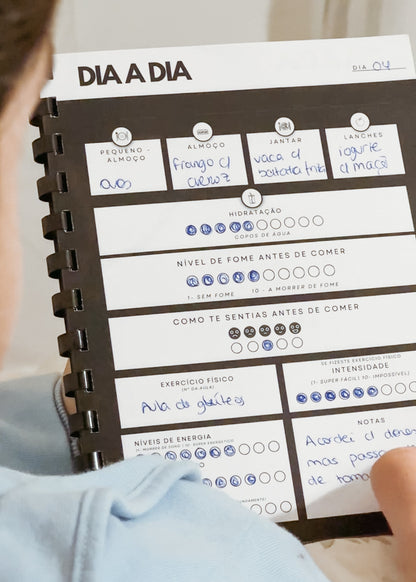 DIA A DIA
DIA 04
PEQUENO - ALMOÇO
ovos
ALMOÇO
frango c/
arroz
JANTAR
vaca c/
batata frita
LANCHES
iogurte
c/ maçã
HIDRATAÇÃO
COPOS DE ÁGUA
NÍVEL DE FOME ANTES DE COMER
1- SEM FOME 10 - A MORRER DE FOME
COMO TE SENTIAS ANTES DE COMER
EXERCÍCIO FÍSICO
(Nº DA AULA)
Aula de glúteos
SE FIZESTE EXERCÍCIO FÍSICO
INTENSIDADE
(1- SUPER FÁCIL! 10- IMPOSSÍVEL)
NÍVEIS DE ENERGIA
(1- MORRER DE SONO! 10- SUPER ENERGÉTICO)
NOTAS
Acordei c/
mas
de